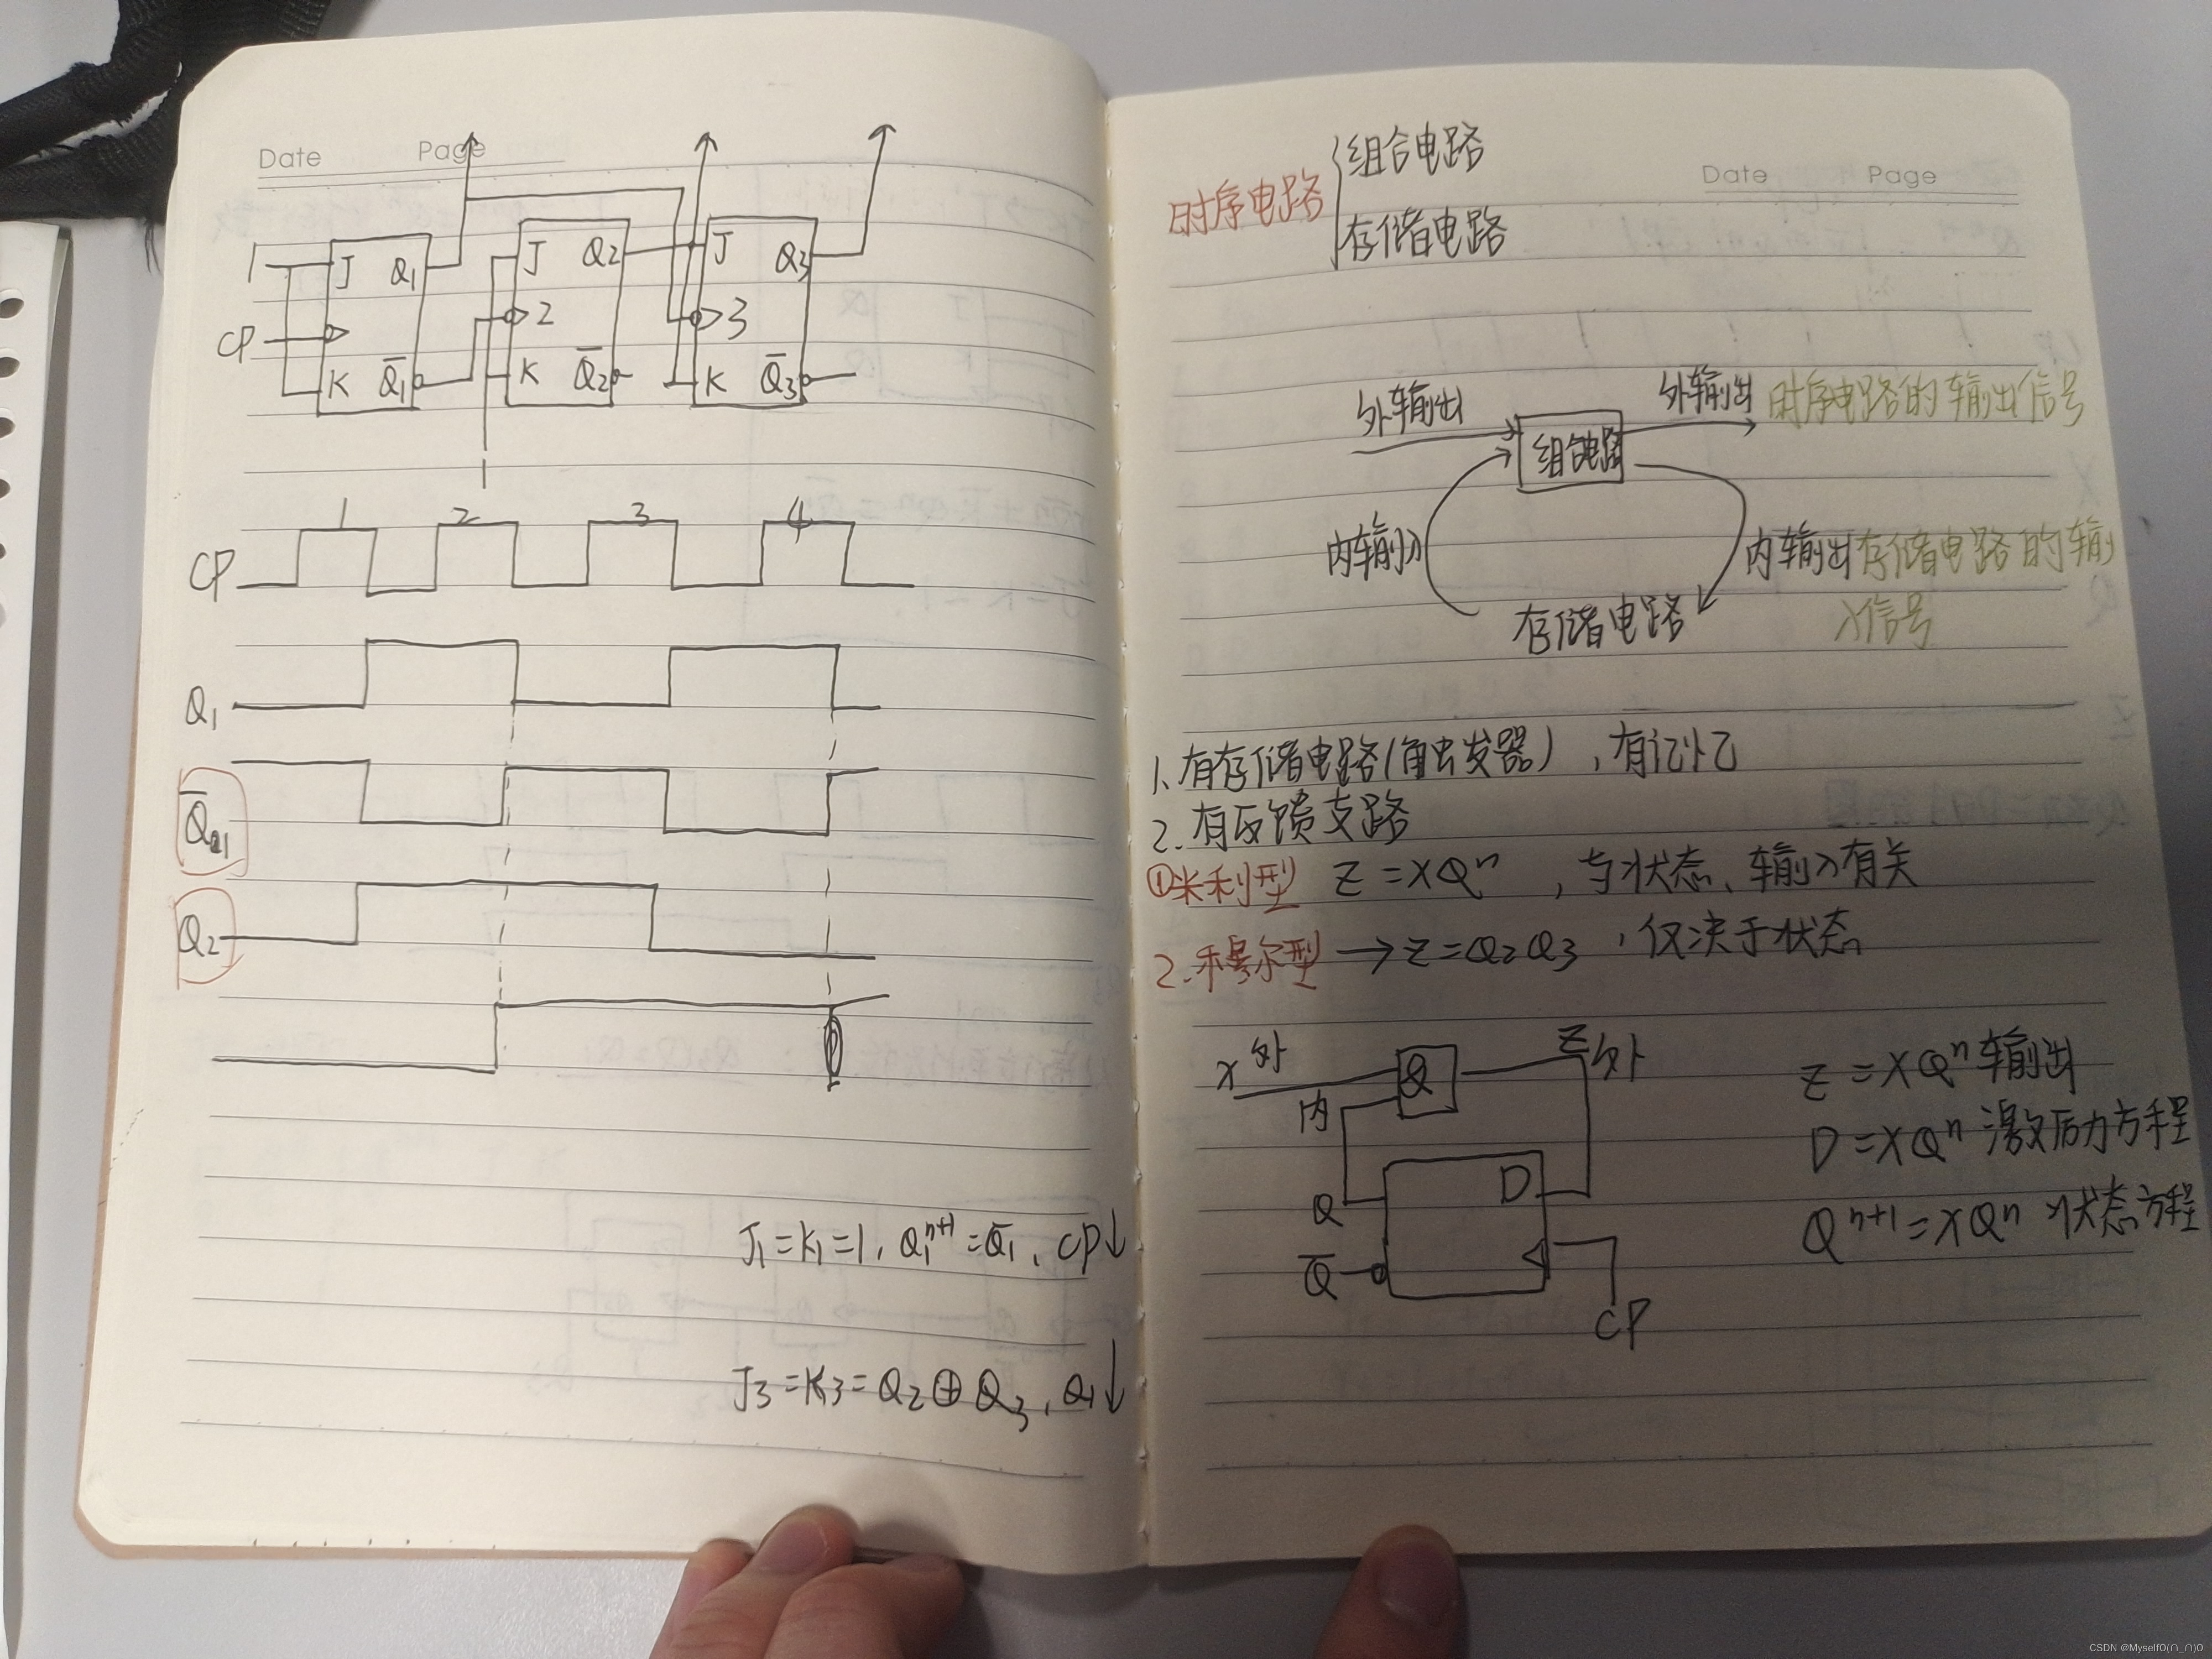 Date Page
1 J Q1 J Q2 J Q3
CP 2 3
K Q̅1 K Q̅2 K Q̅3
1
1 2 3 4
CP
Q1
Q̅1
Q2
J1=K1=1, Q1^n+1=Q̅1, CP↓
J3=K3=Q2⊕Q3, Q1↓
Date Page
时序电路
组合电路
存储电路
外输出 外输出 时序电路的输出信号
组合电路
内输入 内输出 存储电路的输
入信号
存储电路
1、有存储电路(触发器),有记忆
2.有反馈支路
①米利型 Z=XQ^n,与状态、输入有关
2.穆尔型→Z=Q2Q3,仅决于状态
X 外 & Z 外
内
Q D
Q̅
CP
Z=XQ^n 输出
D=XQ^n 激励方程
Q^n+1=XQ^n 状态方程
CSDN @Myself0(∩_∩)0